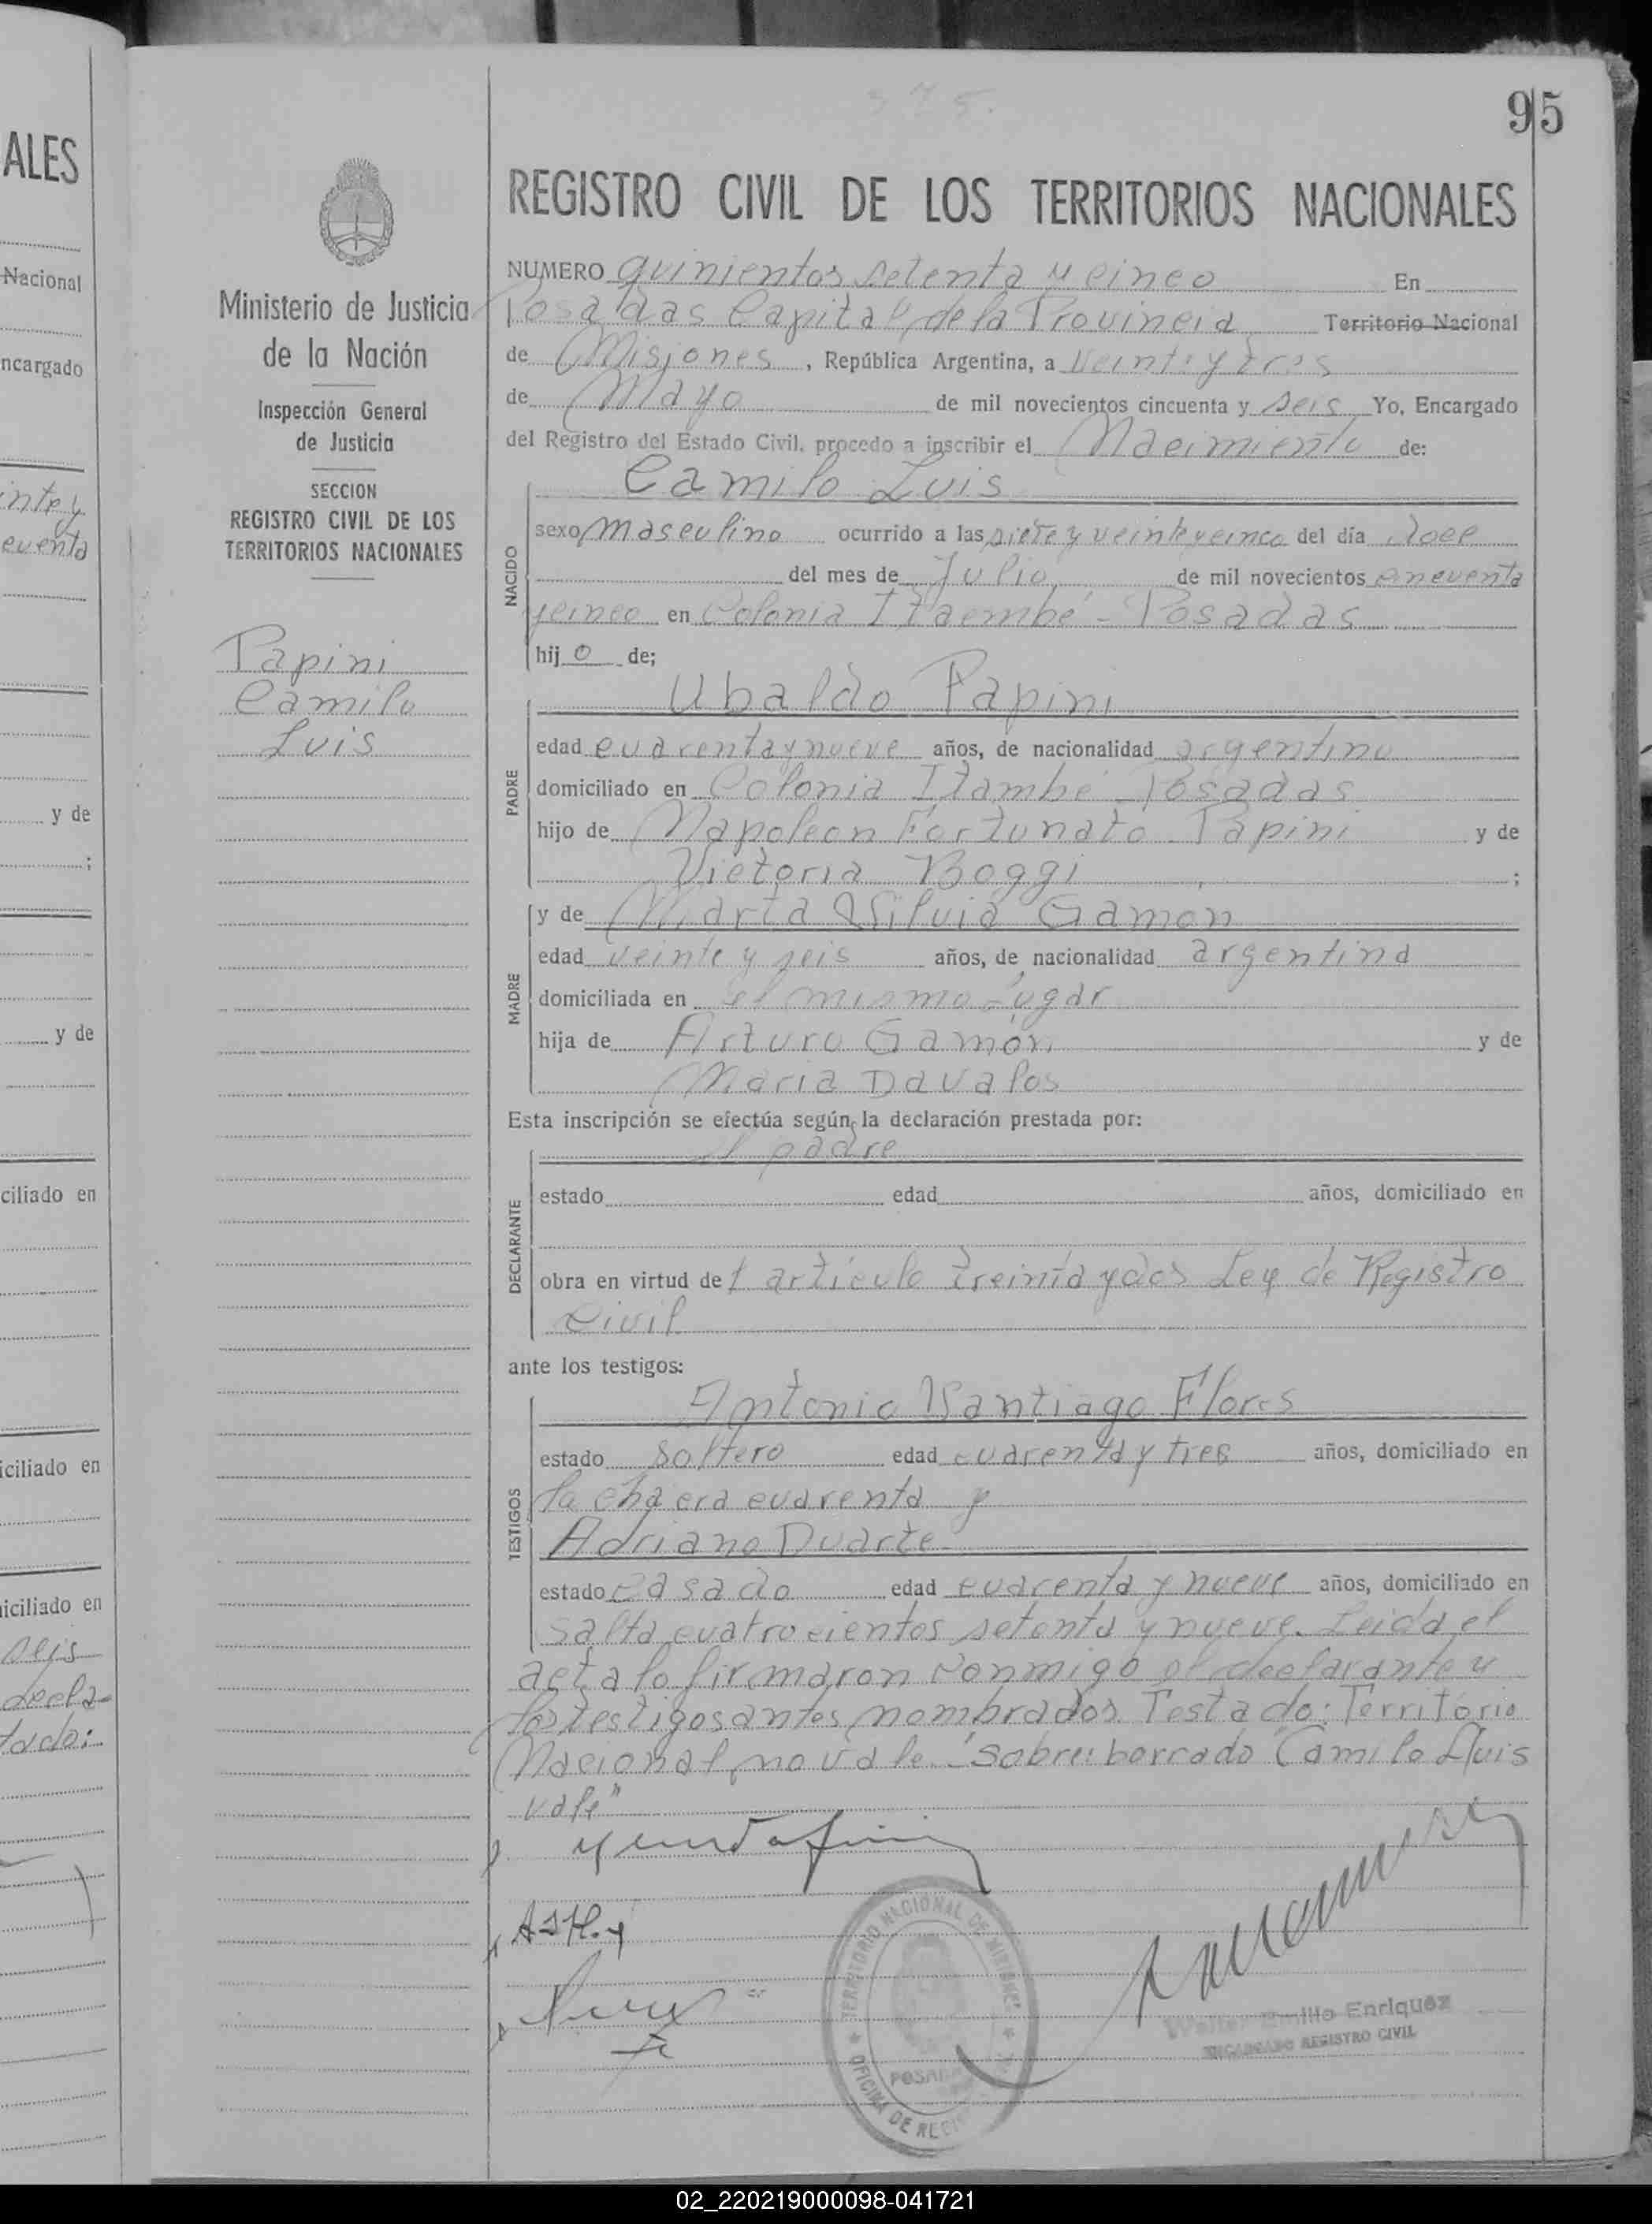 ALES
Nacional
ncargado
inte y
cuenta
y de
;
y de
ciliado en
iciliado en
iciliado en
seis
decla-
tado:
95
Ministerio de Justicia
de la Nación
Inspección General
de Justicia
SECCION
REGISTRO CIVIL DE LOS
TERRITORIOS NACIONALES
Papini
Camilo
Luis
375.
REGISTRO CIVIL DE LOS TERRITORIOS NACIONALES
NUMERO quinientos setenta y cinco En
Posadas Capital de la Provincia Territorio Nacional
de Misiones, República Argentina, a veinte y tres
de Mayo de mil novecientos cincuenta y seis Yo, Encargado
del Registro del Estado Civil, procedo a inscribir el Nacimiento de:
Camilo Luis
NACIDO
sexo masculino ocurrido a las siete y veinte y cinco del día doce
del mes de Julio de mil novecientos cincuenta
y cinco en Colonia Itaembé - Posadas
hij o de;
Ubaldo Papini
PADRE
edad cuarenta y nueve años, de nacionalidad argentino
domiciliado en Colonia Itambé - Posadas
hijo de Napoleon Fortunato Papini y de
Victoria Boggi ;
y de Marta Silvia Gamon
MADRE
edad veinte y seis años, de nacionalidad argentina
domiciliada en el mismo lugar
hija de Arturo Gamón y de
Maria Davalos
Esta inscripción se efectúa según la declaración prestada por:
el padre
DECLARANTE
estado edad años, domiciliado en
obra en virtud del articulo treinta y dos Ley de Registro
Civil
ante los testigos:
Antonio Santiago Flores
TESTIGOS
estado soltero edad cuarenta y tres años, domiciliado en
la chacra cuarenta y
Adriano Duarte
estado casado edad cuarenta y nueve años, domiciliado en
Salta cuatrocientos setenta y nueve. Leida el
acta lo firmaron conmigo el declarante y
los testigos antes nombrados. Testado: Territorio
Nacional, no vale. "Sobre borrado Camilo Luis
vale"
TERRITORIO NACIONAL DE MISIONES
POSADAS
OFICINA DE REG
Walter Emilio Enriquez
ENCARGADO REGISTRO CIVIL
02_220219000098-041721